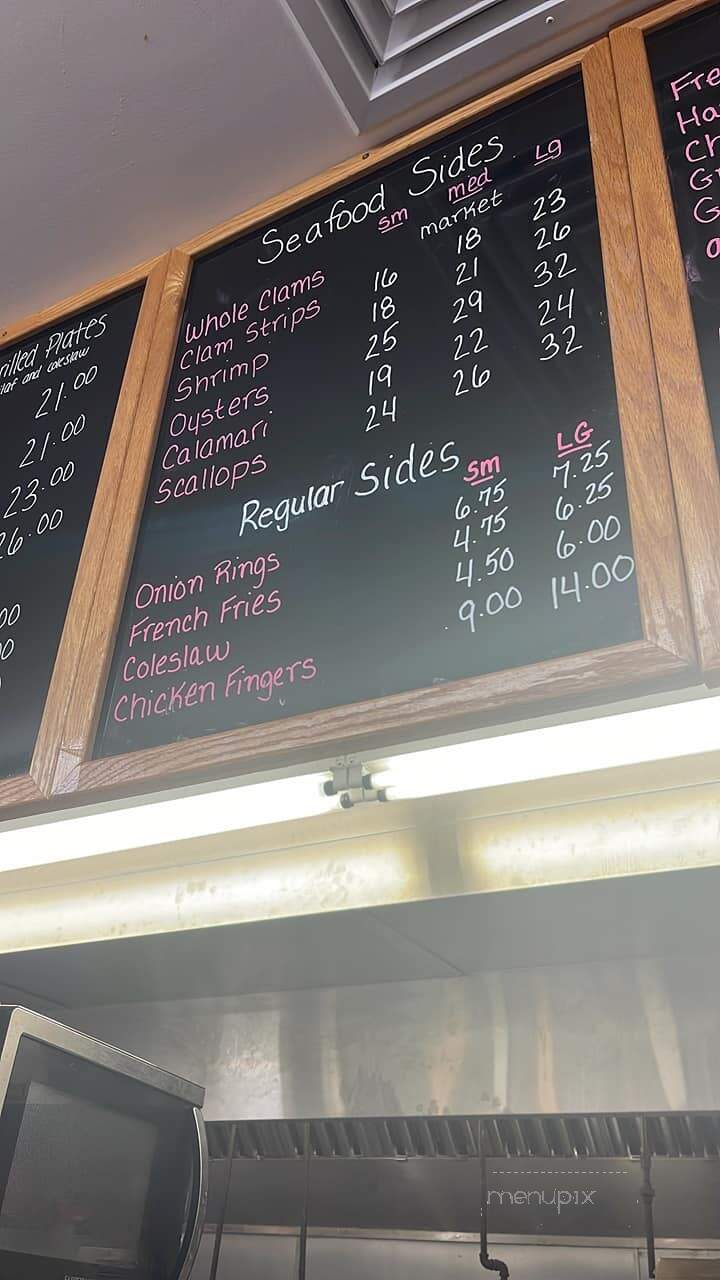 rilled Plates
laf and coleslaw
21.00
21.00
23.00
26.00
00
Seafood Sides
sm med Lg
Whole Clams market
Clam Strips 16 18 23
Shrimp 18 21 26
Oysters 25 29 32
Calamari 19 22 24
Scallops 24 26 32
Regular Sides sm LG
Onion Rings 6.75 7.25
French Fries 4.75 6.25
Coleslaw 4.50 6.00
Chicken Fingers 9.00 14.00
Fre
Ha
Ch
G
menupix